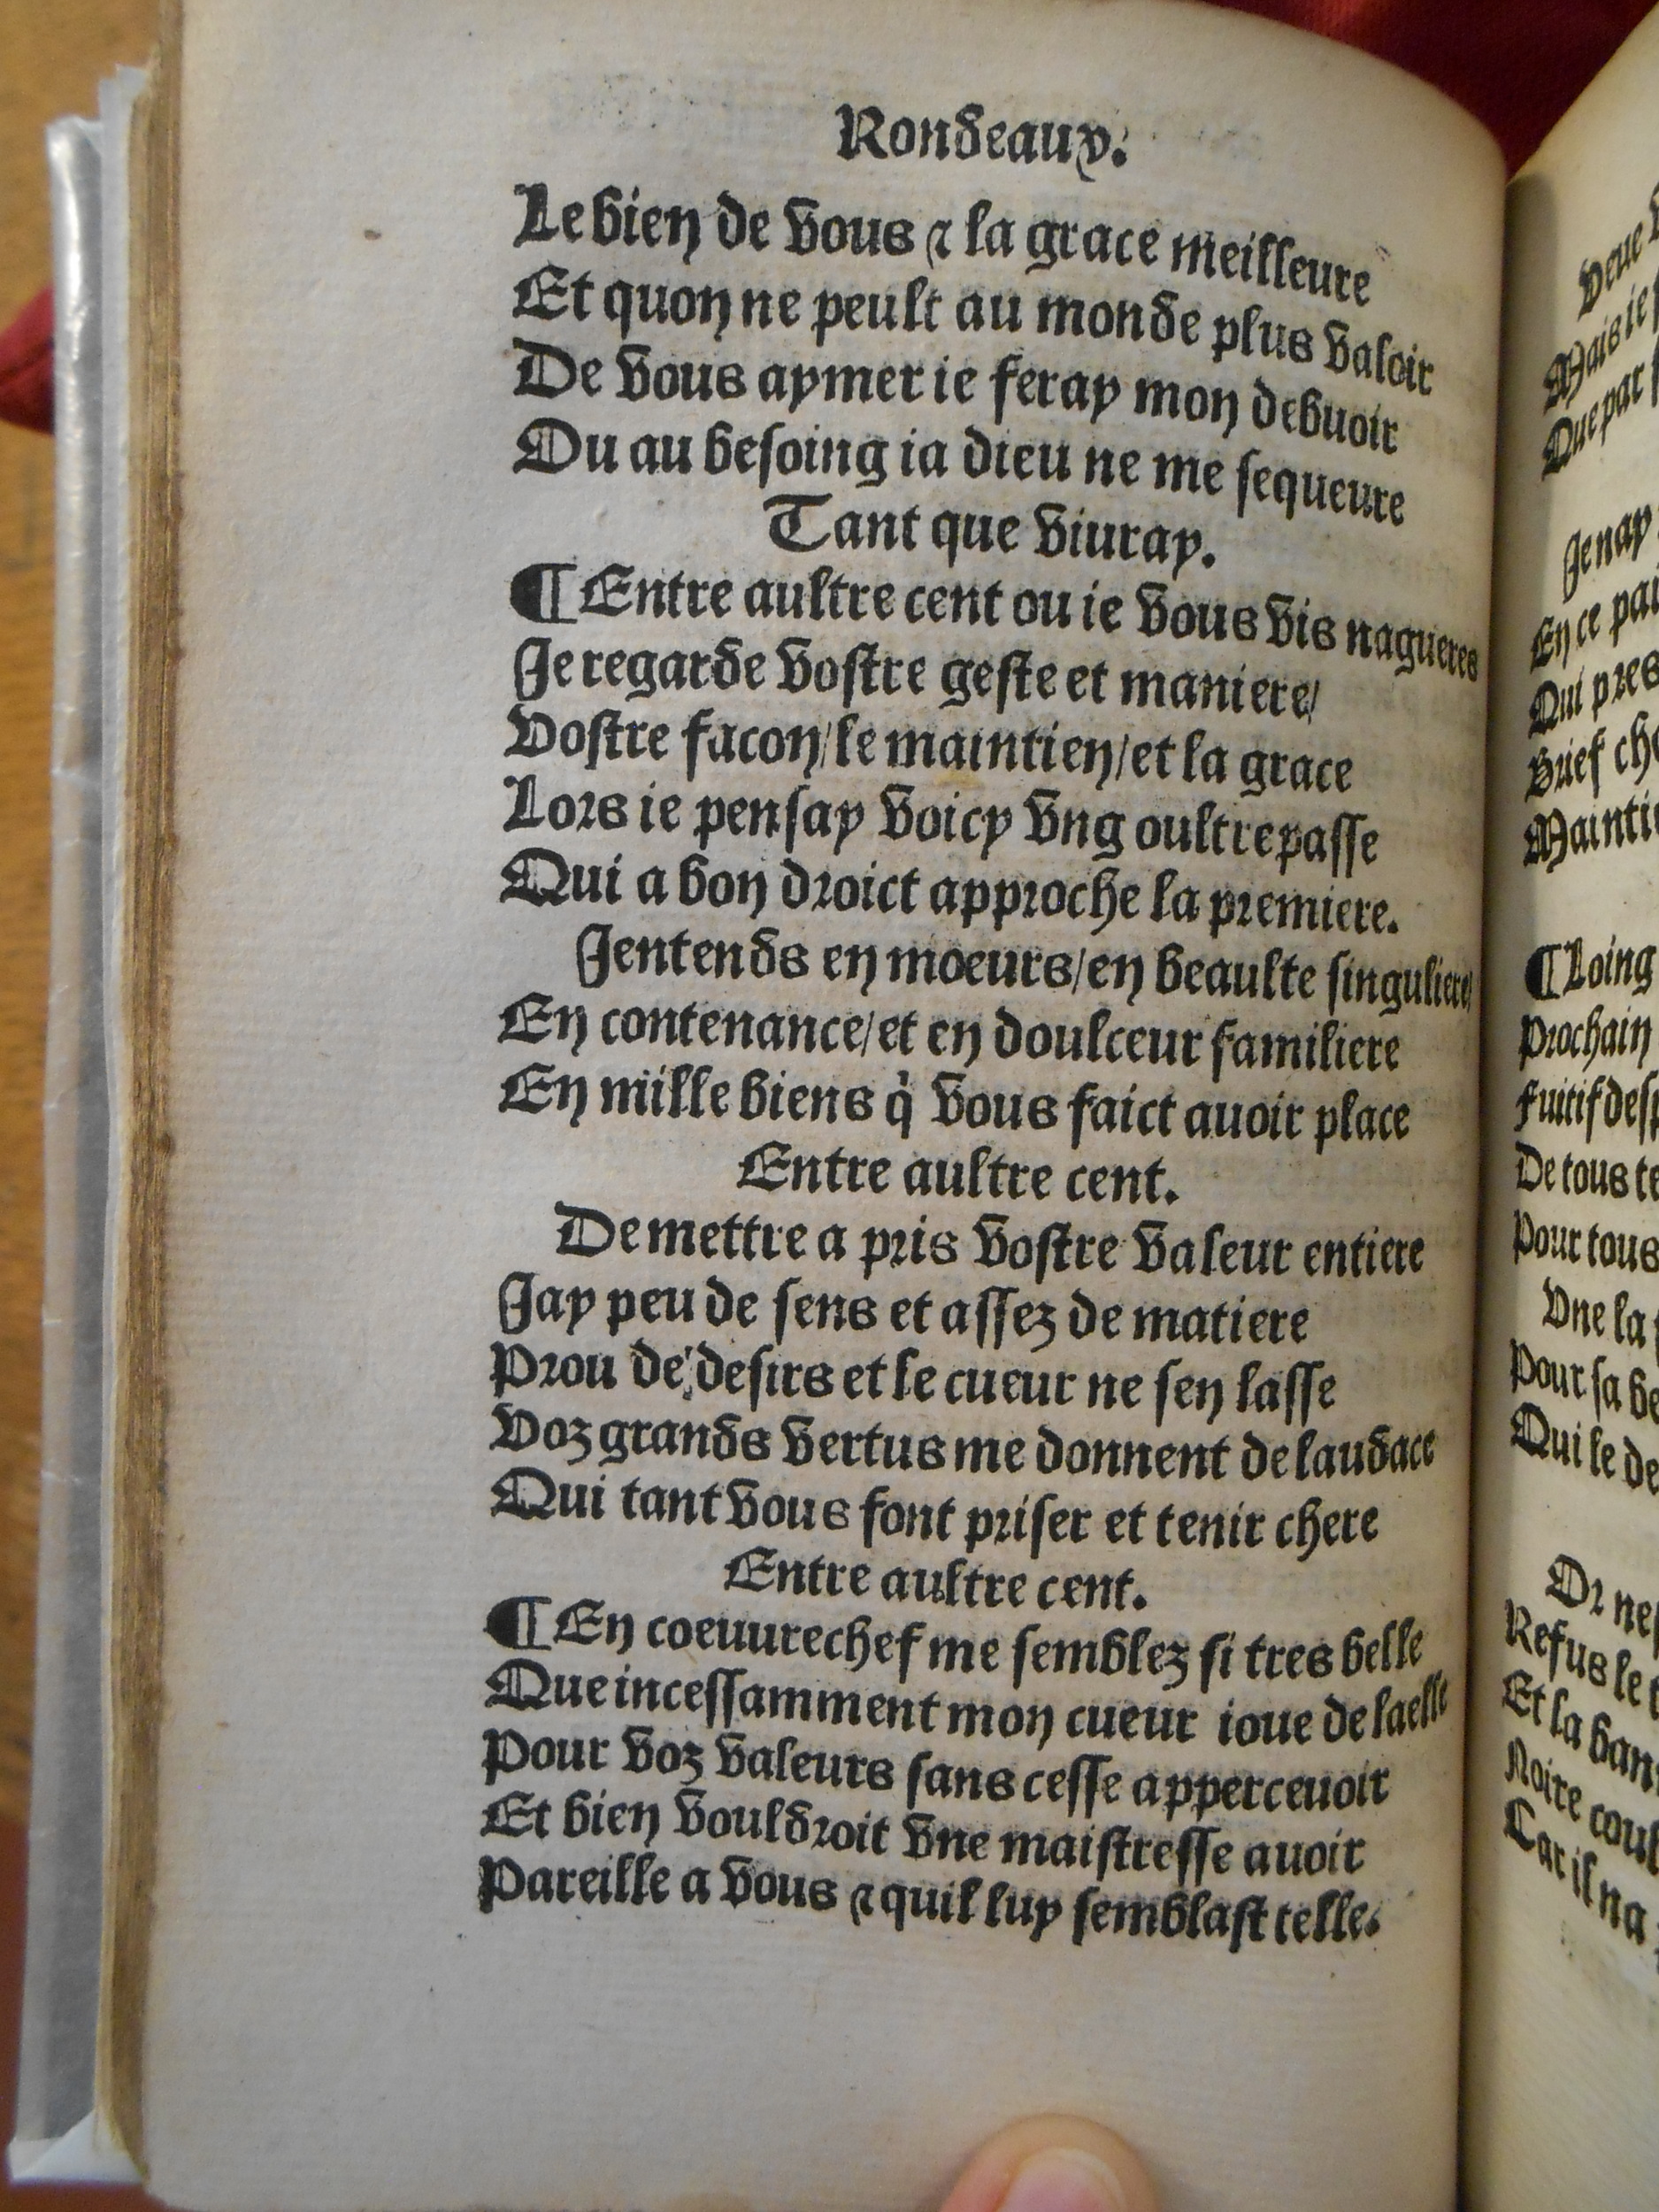 Rondeaux.
Le bien de vous & la grace meilleure
Et quon ne peult au monde plus valoir
De vous aymer ie feray mon debuoir
Ou au besoing ia dieu ne me sequeure
Tant que viuray.
¶ Entre aultre cent ou ie vous vis nagueres
Je regarde vostre geste et maniere/
Vostre facon/le maintien/et la grace
Lors ie pensay voicy vng oultrepasse
Qui a bon droict approche la premiere.
Jentends en moeurs/en beaulte singuliere/
En contenance/et en doulceur familiere
En mille biens q̇ vous faict auoir place
Entre aultre cent.
De mettre a pris vostre valeur entiere
Jay peu de sens et assez de matiere
Prou de desirs et le cueur ne sen lasse
Voz grands vertus me donnent de laudace
Qui tant vous font priser et tenir chere
Entre aultre cent.
¶ En coeuurechef me semblez si tres belle
Que incessamment mon cueur ioue de laelle
Pour voz valeurs sans cesse apperceuoir
Et bien vouldroit vne maistresse auoir
Pareille a vous & quil luy semblast telle.
Mais ie
Que par
Jenay
En ce
Qui pres
Brief
¶ Loing
Prochain
Fuitif
De tous
Pour tous
Vne la
Pour sa
Qui le de
Or
Refus le
Et la
Noire
Car il na